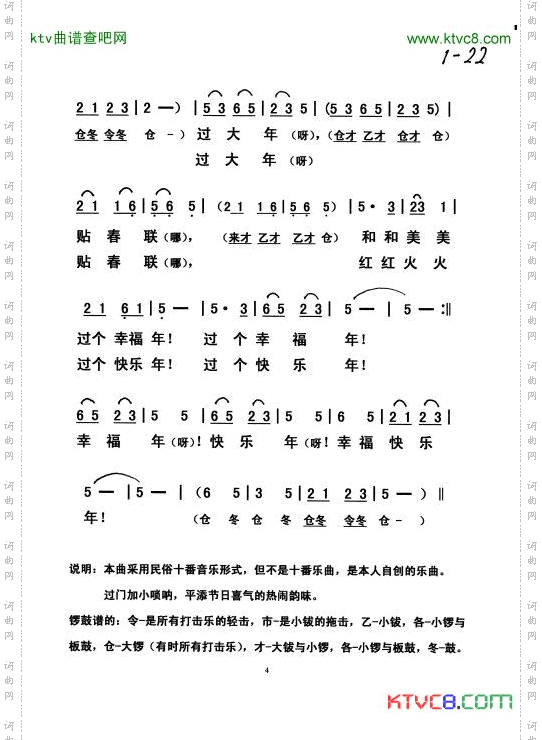 ktv曲谱查吧网 www.ktvc8.com
1-22
2 1 2 3 | 2 — ) | 5 3 6 5 | 2 3 5 | (5 3 6 5 | 2 2 3 5) |
仓冬 令冬 仓 - ) 过 大 年 (呀), (仓才 乙才 仓才 仓)
过 大 年 (呀)
2 1 1 6 | 5 6 5 | (2 1 1 6 | 5 6 5) | 5· 3 | 23 1 |
贴 春 联 (哪), (来才 乙才 乙才 仓) 和 和 美 美
贴 春 联 (哪), 红 红 火 火
2 1 6 1 | 5 — | 5· 3 | 6 5 2 3 | 5 — | 5 — :‖
过个 幸福 年! 过 个 幸 福 年!
过个 快乐 年! 过 个 快 乐 年!
6 5 2 3 | 5 5 | 6 5 2 3 | 5 5 | 6 5 | 2 1 2 3 |
幸 福 年 (呀)! 快 乐 年 (呀)! 幸 福 快 乐
5 — | 5 — | (6 5 | 3 5 | 2 1 2 3 | 5 — ) ‖
年! (仓 冬 仓 冬 仓冬 令冬 仓 - )
说明: 本曲采用民俗十番音乐形式，但不是十番乐曲，是本人自创的乐曲。
过门加小唢呐，平添节日喜气的热闹韵味。
锣鼓谱的: 令-是所有打击乐的轻击，市-是小钹的拖击，乙-小钹，各-小锣与
板鼓，仓-大锣（有时所有打击乐），才-大钹与小锣，各-小锣与板鼓，冬-鼓。
4
KTVC8.COM